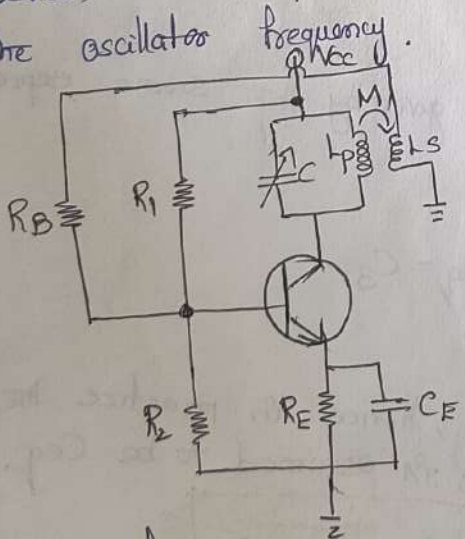 he oscillator frequency.
Vcc
M
R1
C
Lp
Ls
RB
R2
RE
CE